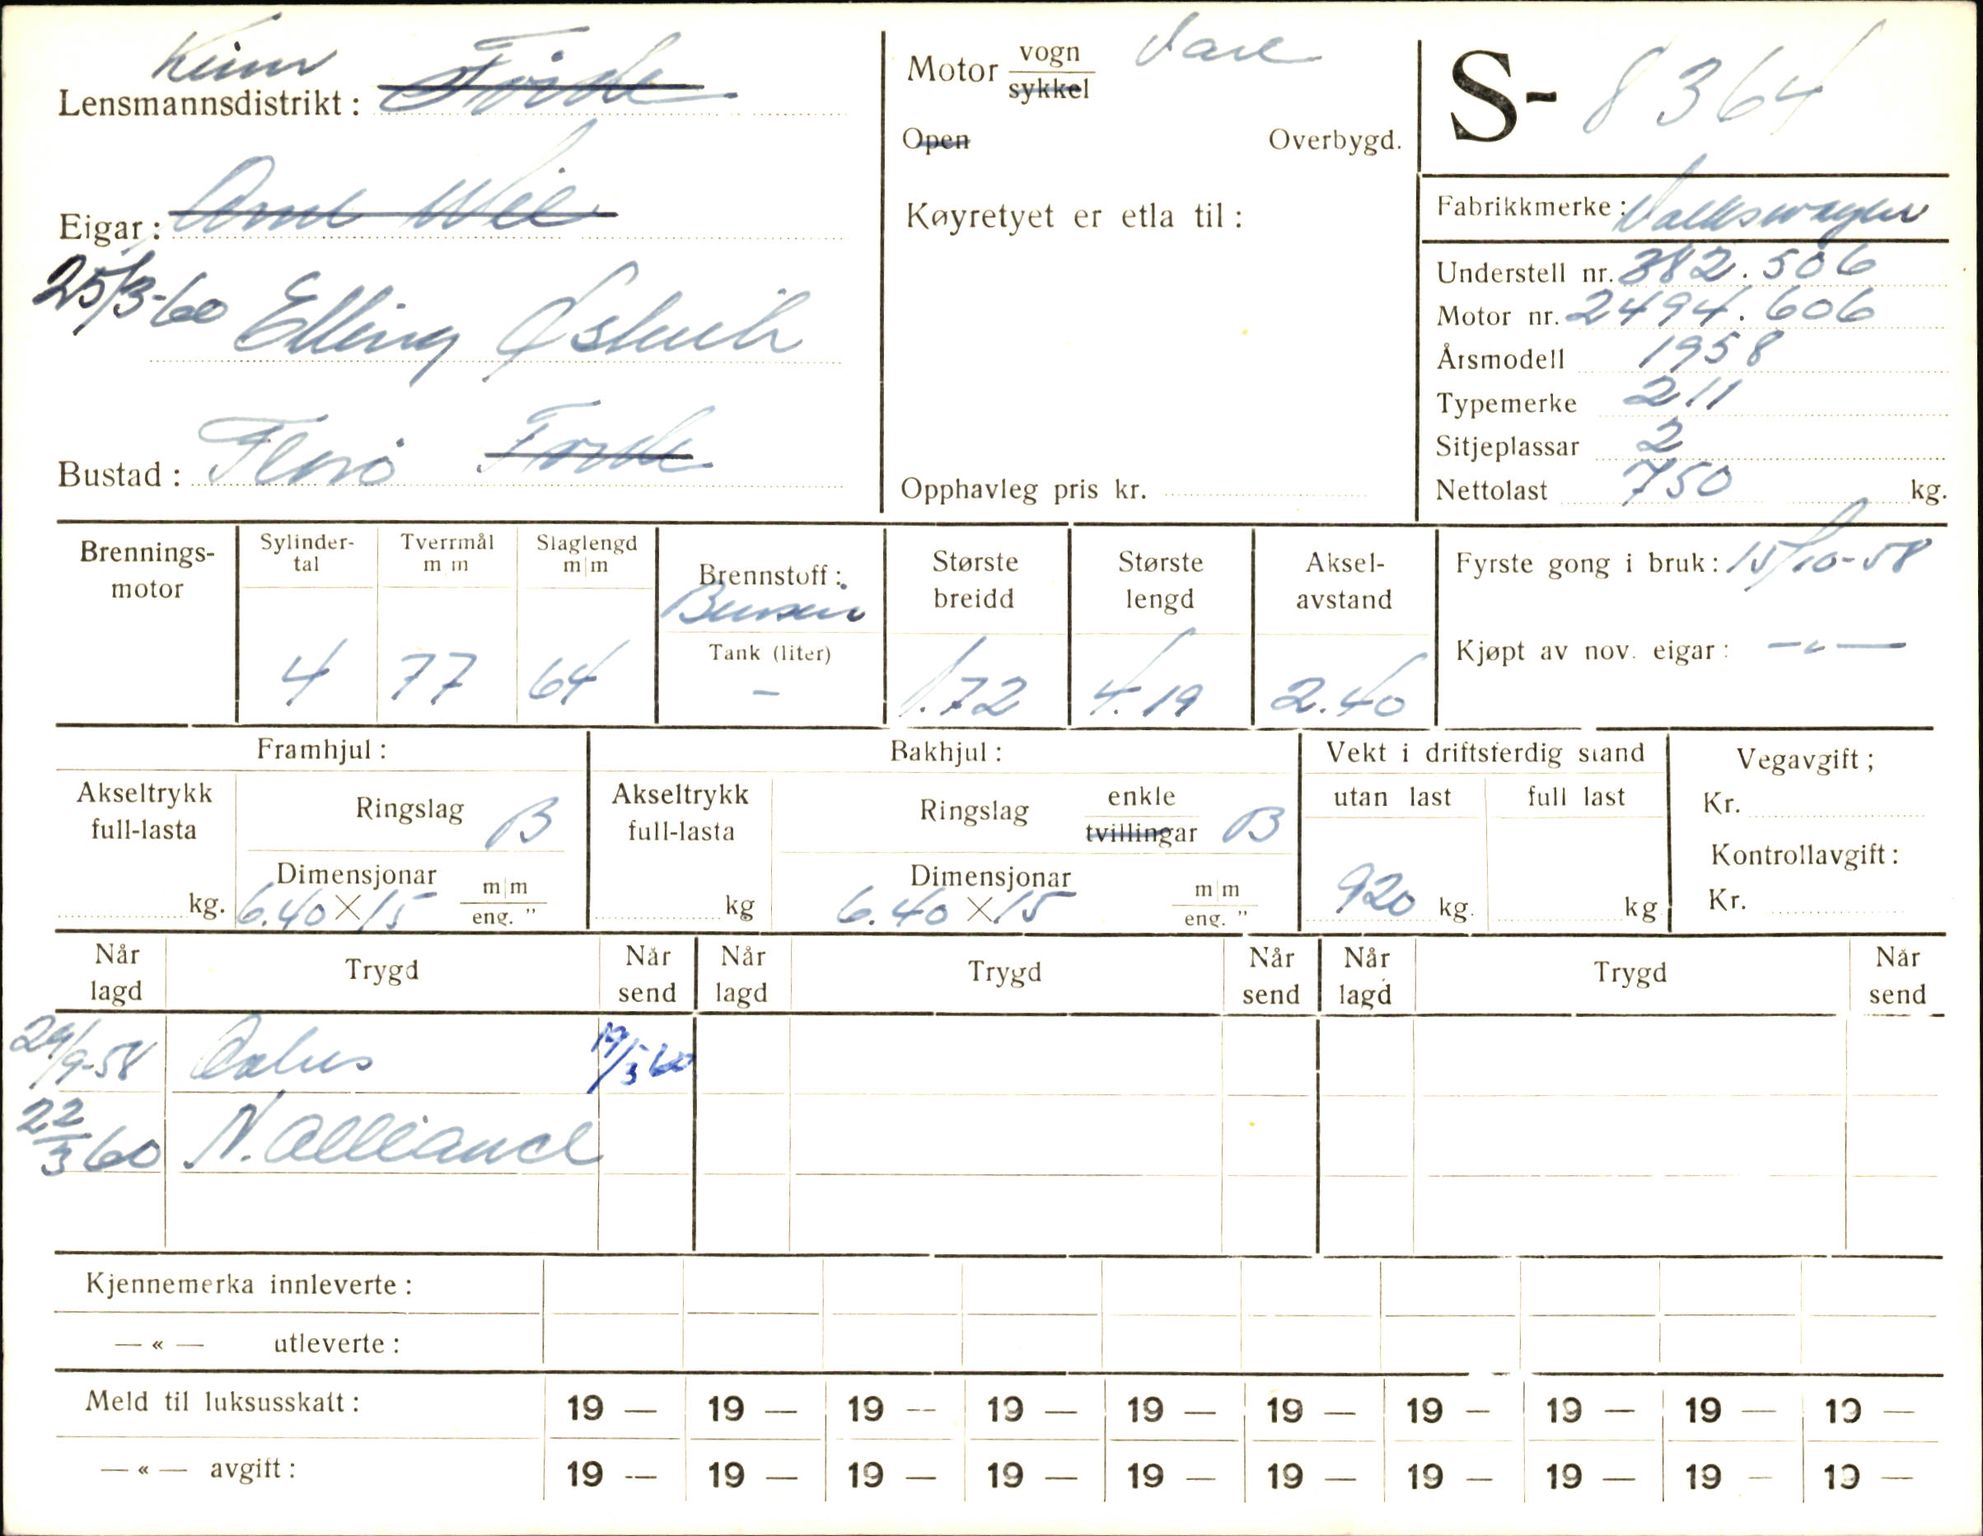 Kinn
Lensmannsdistrikt : Førde
Eigar : Arne Wie
25/3-60 Elling Østevik
Bustad : Florø Førde
Motor vogn Vare
sykkel
Open Overbygd.
Køyretyet er etla til :
Opphavleg pris kr.
S- 8364
Fabrikkmerke : Volkswagen
Understell nr. 382.506
Motor nr. 2494.606
Årsmodell 1958
Typemerke 211
Sitjeplassar 2
Nettolast 750 kg.
Brennings-
motor
Sylinder-
tal
4
Tverrmål
m m
77
Slaglengd
m|m
64
Brennstoff :
Bensin
Tank (liter)
-
Største
breidd
1.72
Største
lengd
4.19
Aksel-
avstand
2.40
Fyrste gong i bruk : 15/10-58
Kjøpt av nov. eigar : —"—
Framhjul :
Akseltrykk
full-lasta
kg.
Ringslag B
Dimensjonar
6.40 X 15 m|m
eng. "
Bakhjul :
Akseltrykk
full-lasta
kg
Ringslag enkle
tvillingar B
Dimensjonar
6.40 X 15 m|m
eng. "
Vekt i driftsferdig stand
utan last full last
920 kg. kg
Vegavgift ;
Kr.
Kontrollavgift :
Kr.
Når
lagd Trygd Når
send Når
lagd Trygd Når
send Når
lagd Trygd Når
send
29/9-58 19/3 60
22/3 60 N. Alliance
Kjennemerka innleverte :
— « — utleverte :
Meld til luksusskatt : 19 — 19 — 19 — 19 — 19 — 19 — 19 — 19 — 19 — 19 —
— « — avgift : 19 — 19 — 19 — 19 — 19 — 19 — 19 — 19 — 19 — 19 —